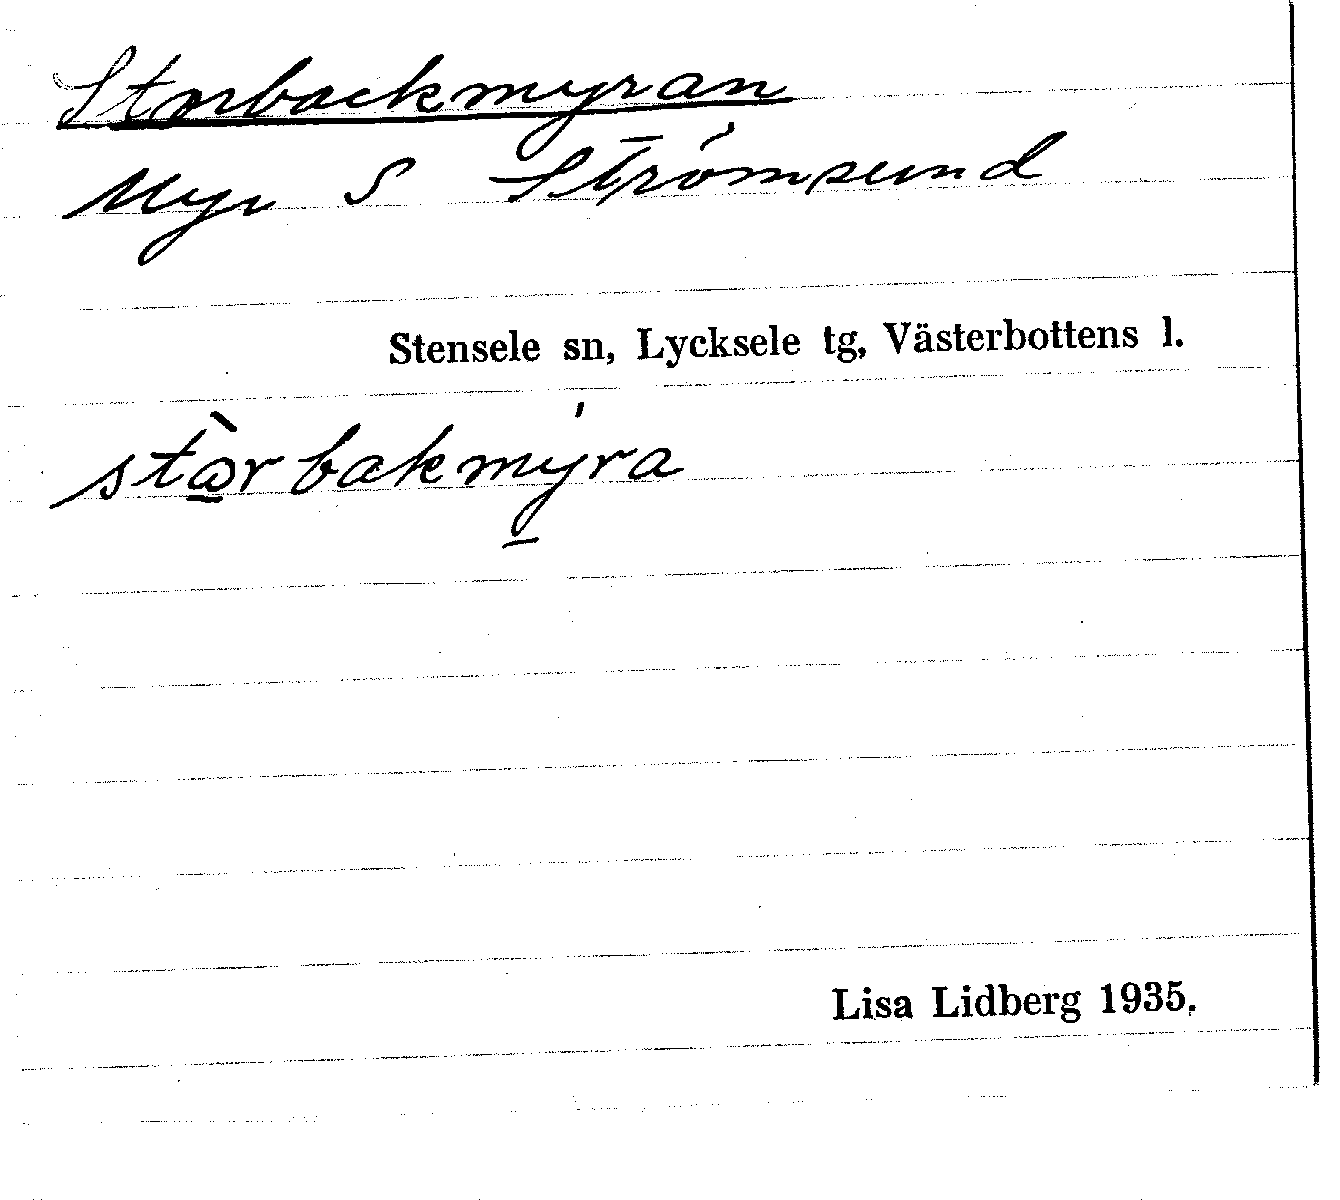 Storbackmyran
Myr S Strömsund
Stensele sn, Lycksele tg, Västerbottens l.
stòrbakmýra
Lisa Lidberg 1935.